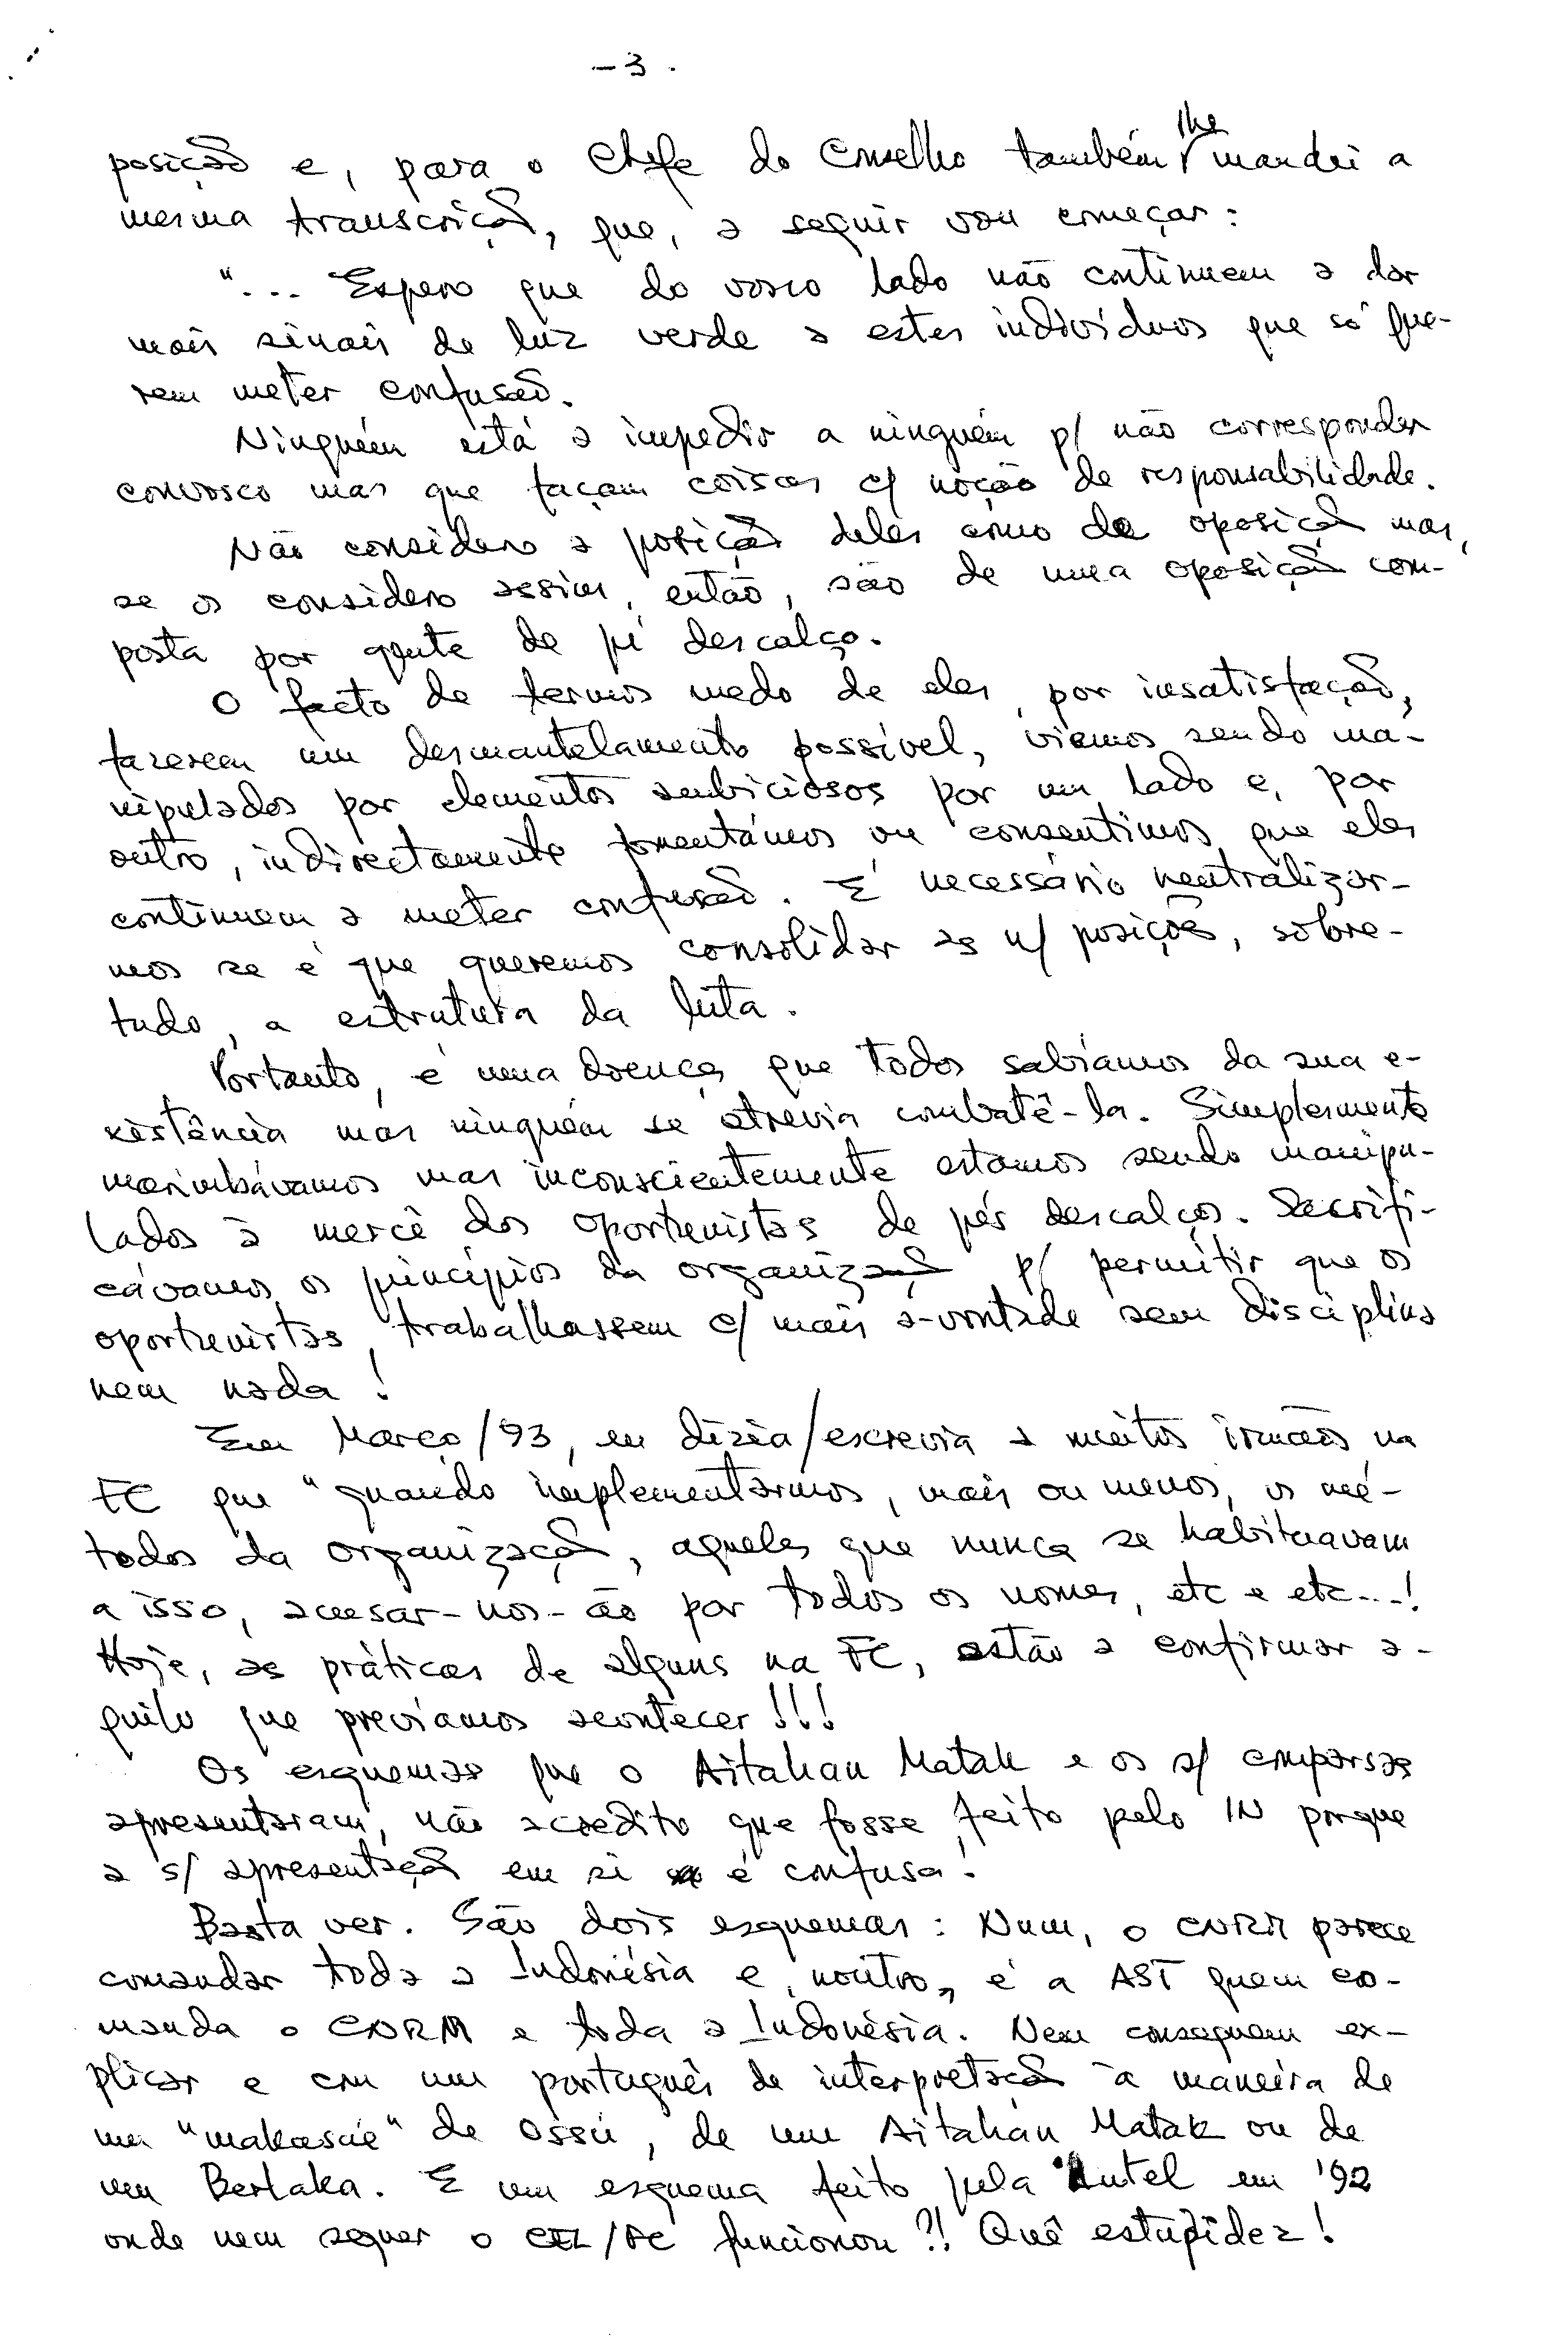 - 3 .
posição e, para o Chefe do Conselho também lhe mandei a
mesma transcrição, que, a seguir vou começar:
"... Espero que do vosso lado não continuem a dar
mais sinais de luz verde a estes indivíduos que só que-
rem meter confusão.
Ninguém está a impedir a ninguém p/ não corresponder
convosco mas que façam coisas c/ noção de responsabilidade.
Não considero a posição deles como de oposição mas,
se os considero assim, então, são de uma oposição com-
posta por gente de pé descalço.
O facto de termos medo de eles, por insatisfação,
fazerem um desmantelamento possível, viemos sendo ma-
nipulados por elementos ambiciosos por um lado e, por
outro, indirectamente fomentámos ou consentimos que eles
continuem a meter confusão. É necessário neutralizar-
mos se é que queremos consolidar as n/ posições, sobre-
tudo, a estrutura da luta.
Portanto, é uma doença que todos sabíamos da sua e-
xistência mas ninguém se atrevia combatê-la. Simplesmente
marimbávamos mas inconscientemente estamos sendo manipu-
lados à mercê dos oportunistas de pés descalços. Sacrifi-
cávamos os princípios da organização p/ permitir que os
oportunistas trabalhassem c/ mais a-vontade sem disciplina
nem nada!
Em Março/93, eu dizia/escrevia a muitos irmãos na
FC que "quando implementarmos, mais ou menos, os mé-
todos da organização, aqueles que nunca se habituavam
a isso, acusar-nos-ão por todos os nomes, etc e etc...!
Hoje, as práticas de alguns na FC, estão a confirmar a-
quilo que prevíamos acontecer!!!
Os esquemas que o Aitahan Matak e os s/ comparsas
apresentaram, não acredito que fosse feito pelo IN porque
a s/ apresentação em si é confusa!
Basta ver. São dois esquemas: Num, o CNRM parece
comandar toda a Indonésia e, noutro, é a AST quem co-
manda o CNRM e toda a Indonésia. Nem conseguem ex-
plicar e com um português de interpretação à maneira de
um "makasae" de Ossú, de um Aitahan Matak ou de
um Berlaka. É um esquema feito pela Intel em '92
onde nem sequer o CEL/FC funcionou?! Quê estupidez!